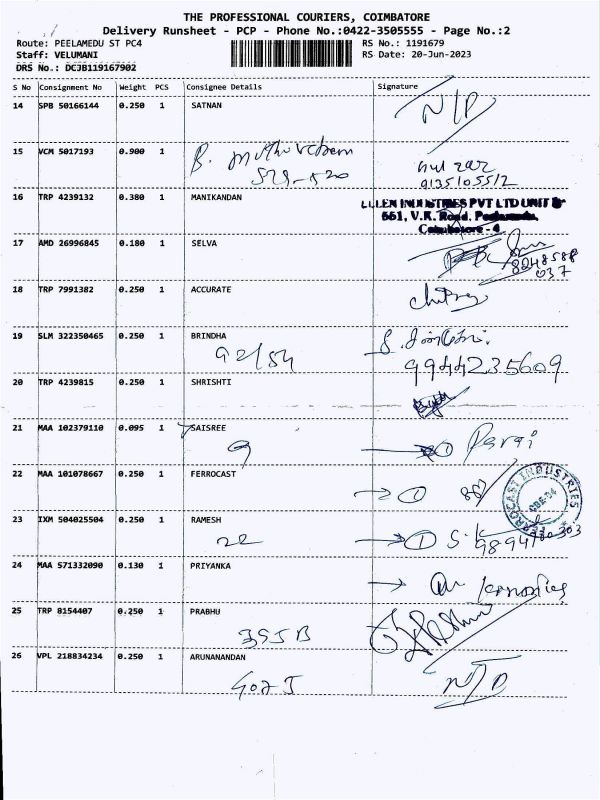 THE PROFESSIONAL COURIERS, COIMBATORE
Delivery Runsheet - PCP - Phone No.:0422-3505555 - Page No.:2
Route: PEELAMEDU ST PC4
RS No.: 1191679
Staff: VELUMANI
RS Date: 20-Jun-2023
DRS No.: DCJB119167902
S No Consignment No Weight PCS Consignee Details Signature
14 SPB 50166144 0.250 1 SATNAN N/D
15 VCM 5017193 0.900 1 B.
9135105512
16 TRP 4239132 0.380 1 MANIKANDAN
INDUSTRIES PVT LTD UNIT
661, V.K. Road, Peelamedu,
Coimbatore - 4
17 AMD 26996845 0.180 1 SELVA
8248588
037
18 TRP 7991382 0.250 1 ACCURATE
19 SLM 322350465 0.250 1 BRINDHA
92/54
9944235609
20 TRP 4239815 0.250 1 SHRISHTI
21 MAA 102379110 0.095 1 SAISREE
9
22 MAA 101078667 0.250 1 FERROCAST
FERROCAST INDUSTRIES
CBE-04
23 IXM 504025504 0.250 1 RAMESH
22
24 MAA 571332090 0.130 1 PRIYANKA
25 TRP 8154407 0.250 1 PRABHU
395 B
26 VPL 218834234 0.250 1 ARUNANANDAN N/D
402 J